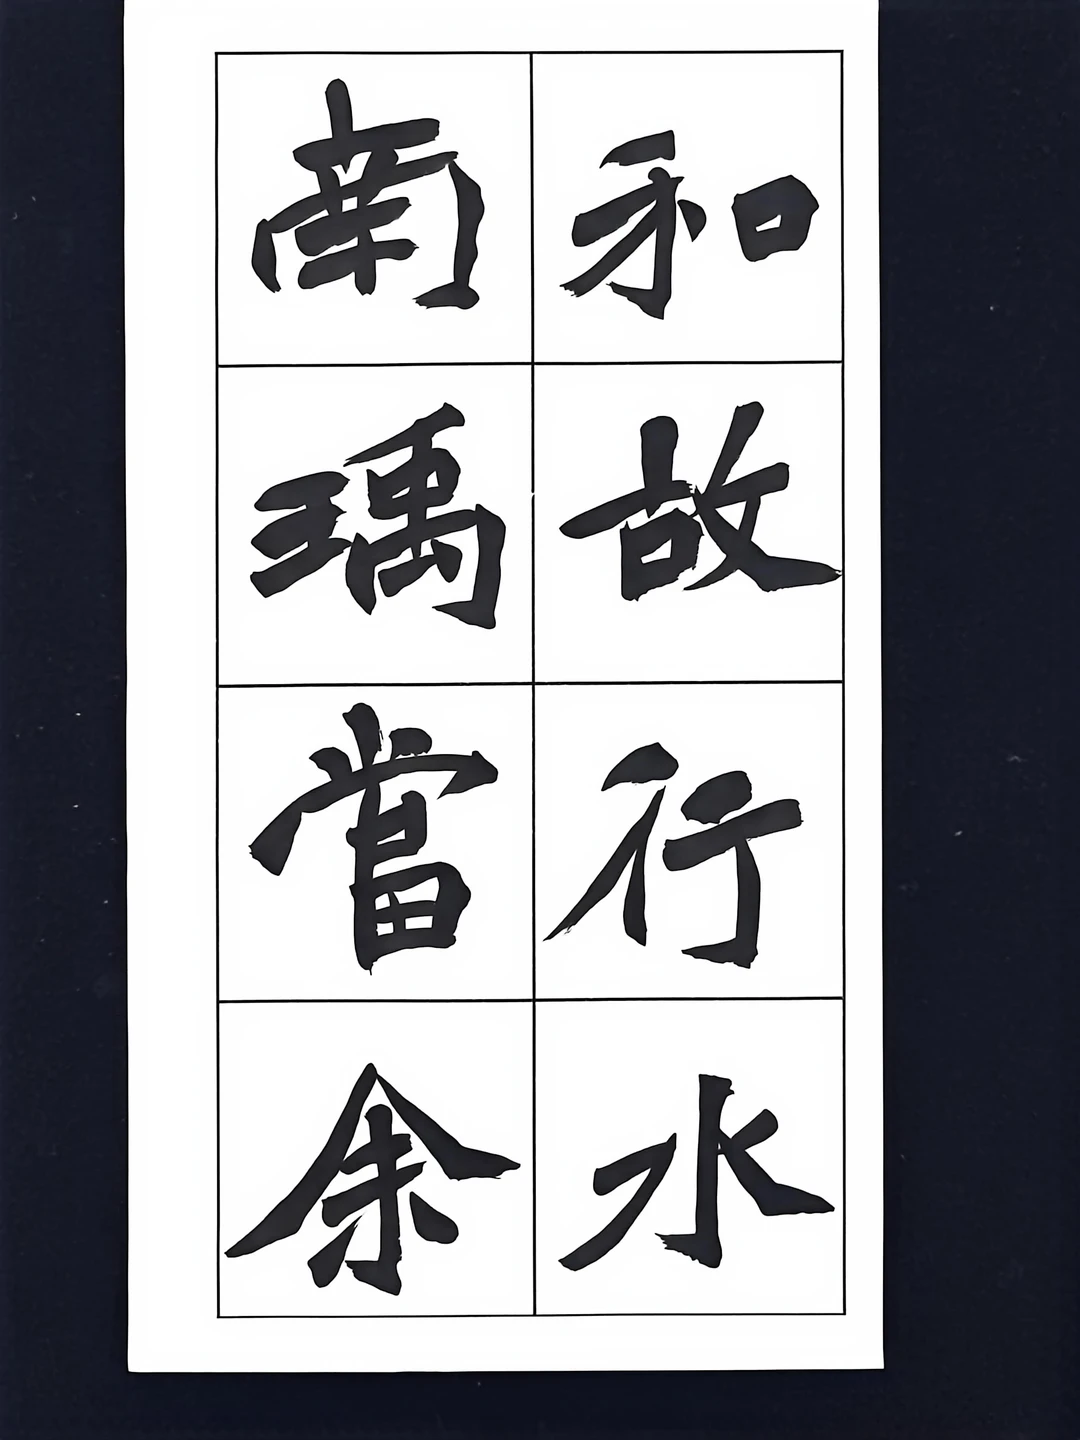 和故行水
南瑀當余